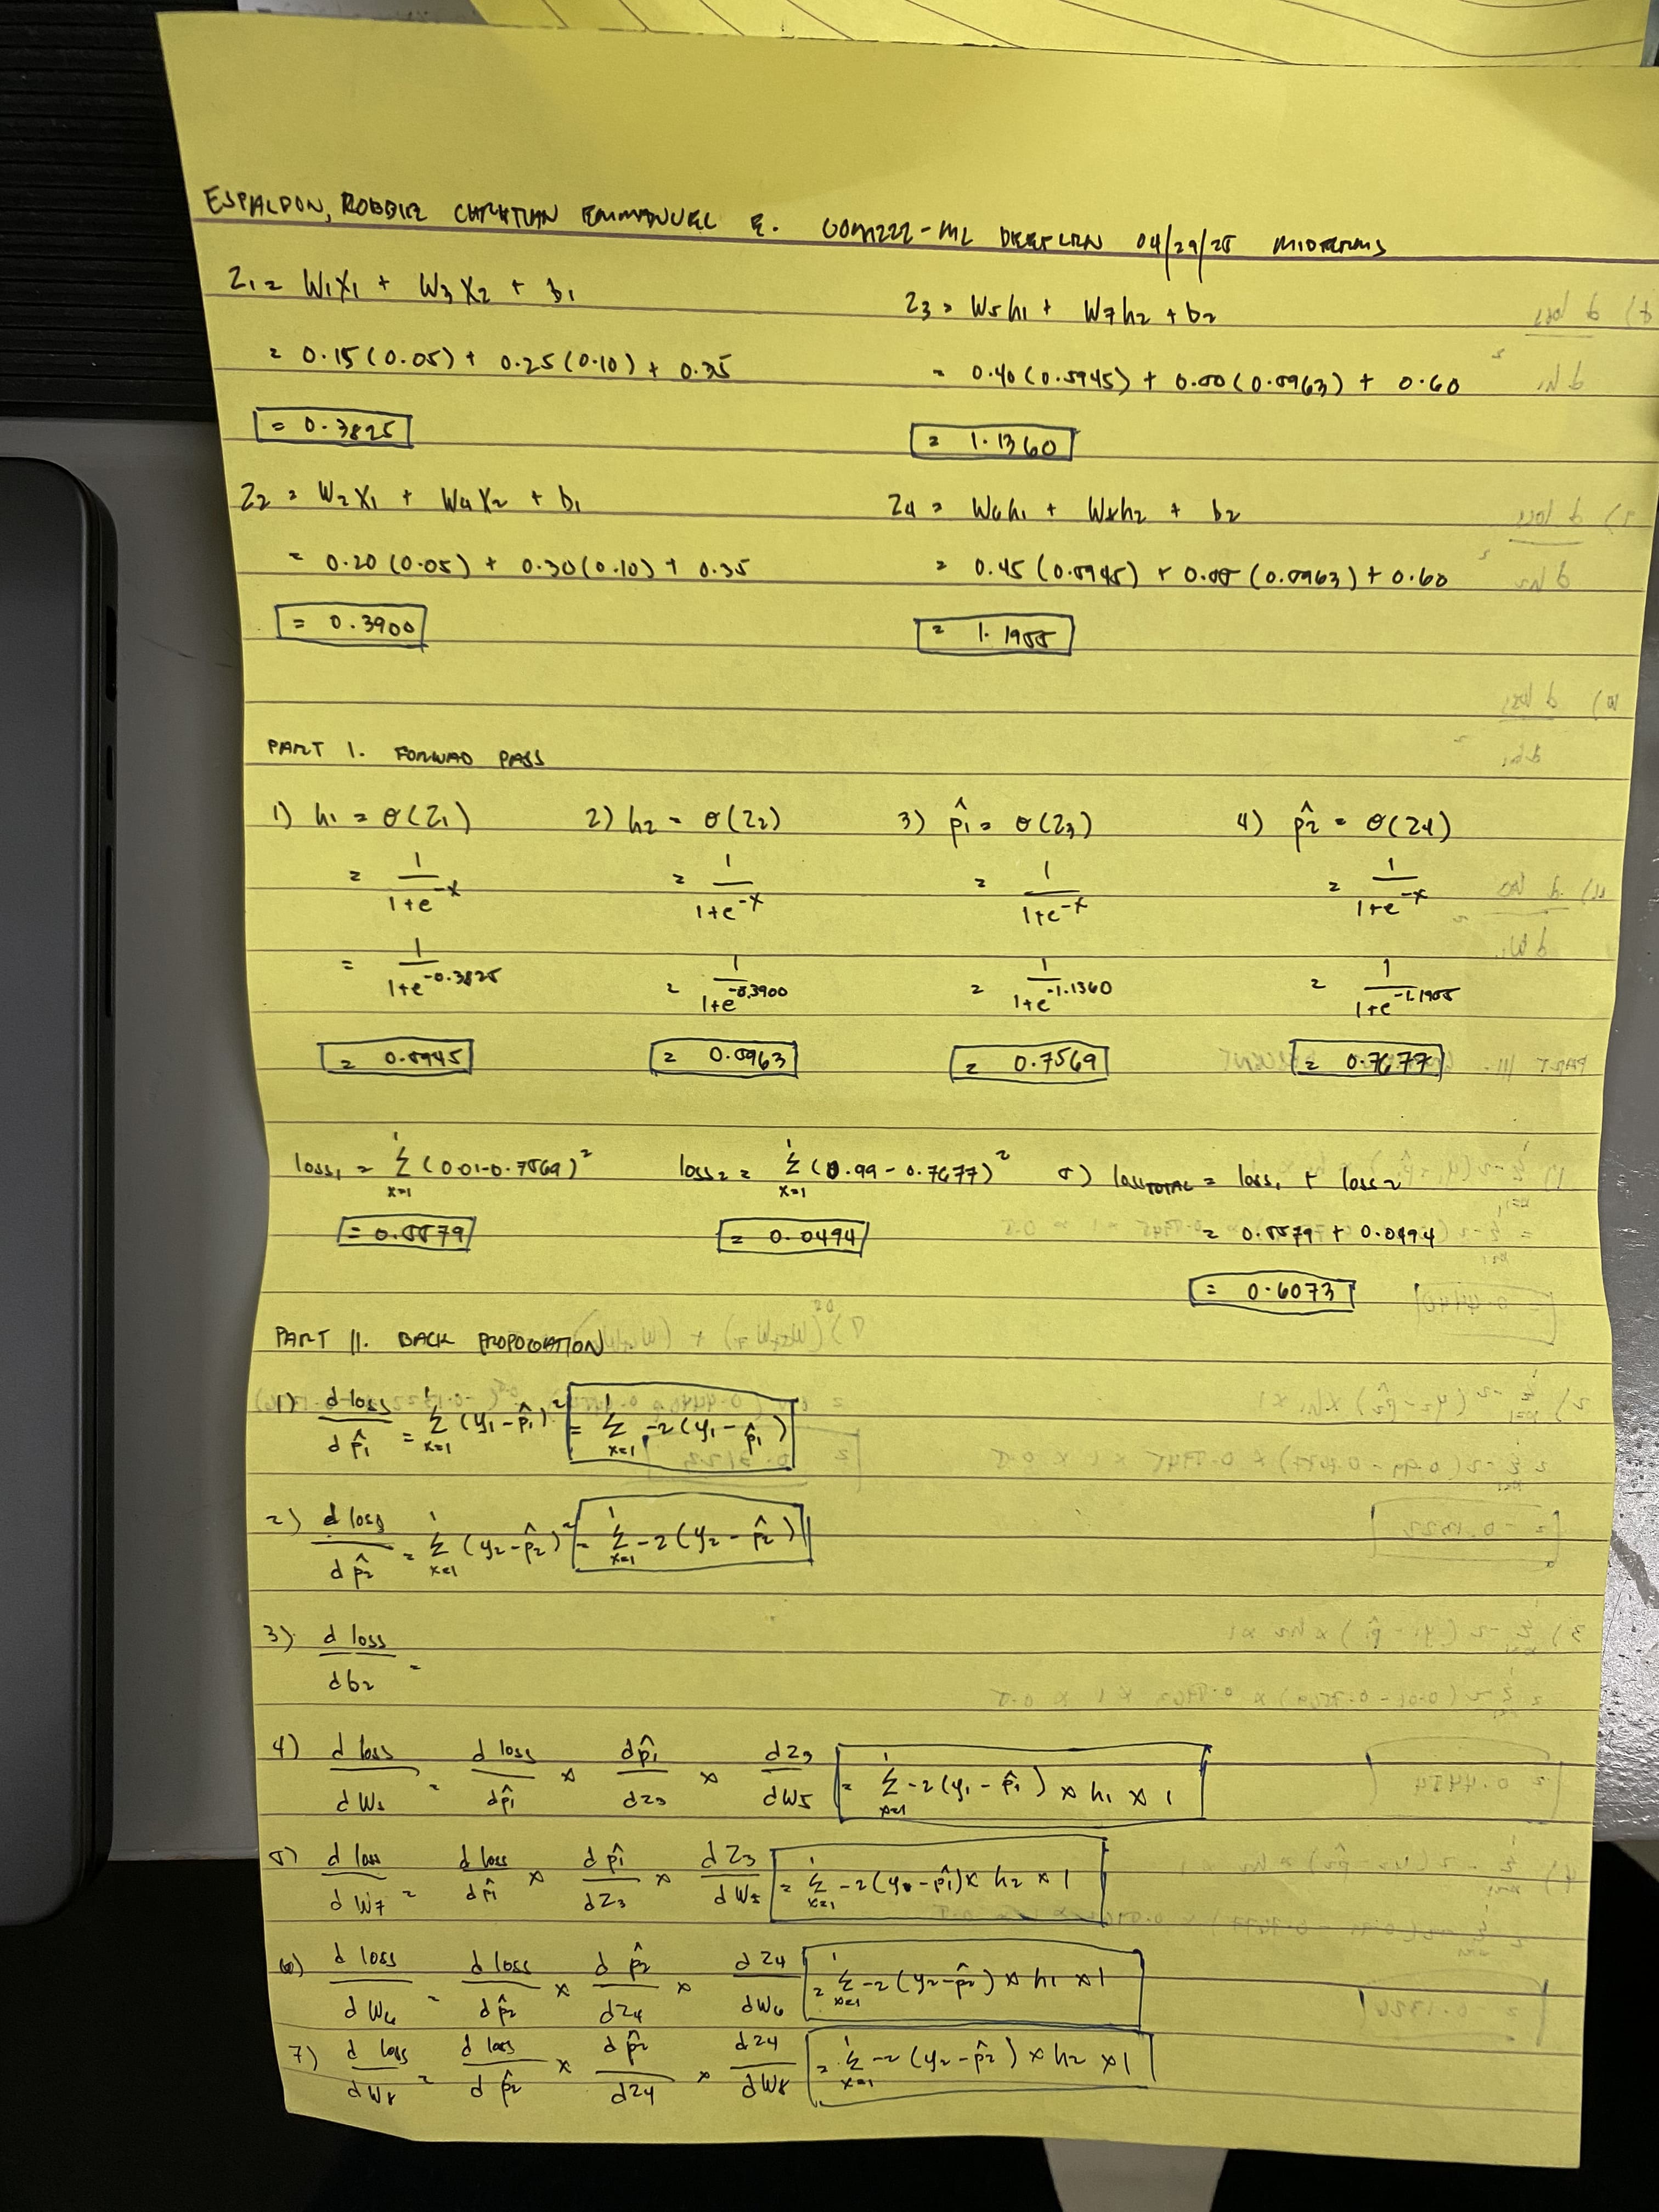 ESPALDON, ROBBIE CHRISTIAN EMMANUEL E. COM222-ML DEEPLRN 04/29/25 MIDTERMS
Z₁ = W₁X₁ + W₃X₂ + b₁
= 0.15(0.05) + 0.25(0.10) + 0.35
= 0.3825
Z₂ = W₂X₁ + W₄X₂ + b₁
= 0.20(0.05) + 0.30(0.10) + 0.35
= 0.3900
Z₃ = W₅h₁ + W₇h₂ + b₂
= 0.40(0.5945) + 0.50(0.5963) + 0.60
= 1.1360
Z₄ = W₆h₁ + W₈h₂ + b₂
= 0.45(0.5945) + 0.55(0.5963) + 0.60
= 1.1955
PART I. FORWAD PASS
1) h₁ = σ(Z₁)
= 1/(1+e^-x)
= 1/(1+e^-0.3825)
= 0.5945
2) h₂ = σ(Z₂)
= 1/(1+e^-x)
= 1/(1+e^-0.3900)
= 0.5963
3) p̂₁ = σ(Z₃)
= 1/(1+e^-x)
= 1/(1+e^-1.1360)
= 0.7569
4) p̂₂ = σ(Z₄)
= 1/(1+e^-x)
= 1/(1+e^-1.1955)
= 0.7677
loss₁ = Σ (0.01-0.7569)²
= 0.5579
loss₂ = Σ (0.99-0.7677)²
= 0.0494
5) loss TOTAL = loss₁ + loss₂
= 0.5579 + 0.0494
= 0.6073
PART II. BACK PROPOGATION
1) d loss/d p̂₁ = Σ (y₁-p̂₁)² = Σ -2(y₁-p̂₁)
2) d loss/d p̂₂ = Σ (y₂-p̂₂)² = Σ -2(y₂-p̂₂)
3) d loss/d b₂ =
4) d loss/d W₅ = d loss/d p̂₁ × d p̂₁/d z₃ × d z₃/d W₅ = Σ -2(y₁-p̂₁) × h₁ × 1
5) d loss/d W₇ = d loss/d p̂₁ × d p̂₁/d Z₃ × d Z₃/d W₇ = Σ -2(y₁-p̂₁) × h₂ × 1
6) d loss/d W₆ = d loss/d p̂₂ × d p̂₂/d z₄ × d z₄/d W₆ = Σ -2(y₂-p̂₂) × h₁ × 1
7) d loss/d W₈ = d loss/d p̂₂ × d p̂₂/d z₄ × d z₄/d W₈ = Σ -2(y₂-p̂₂) × h₂ × 1